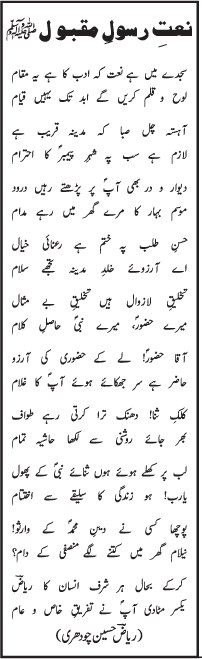 نعتِ رسولِ مقبول ﷺ
سجدے میں ہے نعت کہ ادب کا ہے یہ مقام
لوح و قلم کریں گے ابد تک یہیں قیام
آہستہ چل صبا کہ مدینہ قریب ہے
لازم ہے سب پہ شہرِ پیمبرؐ کا احترام
دیوار و در بھی آپؐ پر پڑھتے رہیں درود
موسم بہار کا مرے گھر میں رہے مدام
حسنِ طلب پہ ختم ہے رعنائیِ خیال
اے آرزوئے خلدِ مدینہ تجھے سلام
تخلیقِ لازوال ہیں تخلیقِ بے مثال
میرے حضورؐ، میرے نبیؐ حاصلِ کلام
آقا حضورؐ! لے کے حضوری کی آرزو
حاضر ہے سر جھکائے ہوئے آپؐ کا غلام
کلکِ ثنا! دھنک ترا کرتی رہے طواف
بھر جائے روشنی سے لکھا حاشیہ تمام
لب پر کھلے ہوئے ہوں ثنائے نبیؐ کے پھول
یارب! ہو زندگی کا سلیقے سے اختتام
پوچھا کسی نے دینِ محمدؐ کے وارثو!
نیلام گھر میں کتنے لگے منصفی کے دام؟
کرکے بحال ہر شرف انسان کا ریاضؔ
یکسر مٹا دی آپؐ نے تفریقِ خاص و عام
(ریاض حسین چودھری)